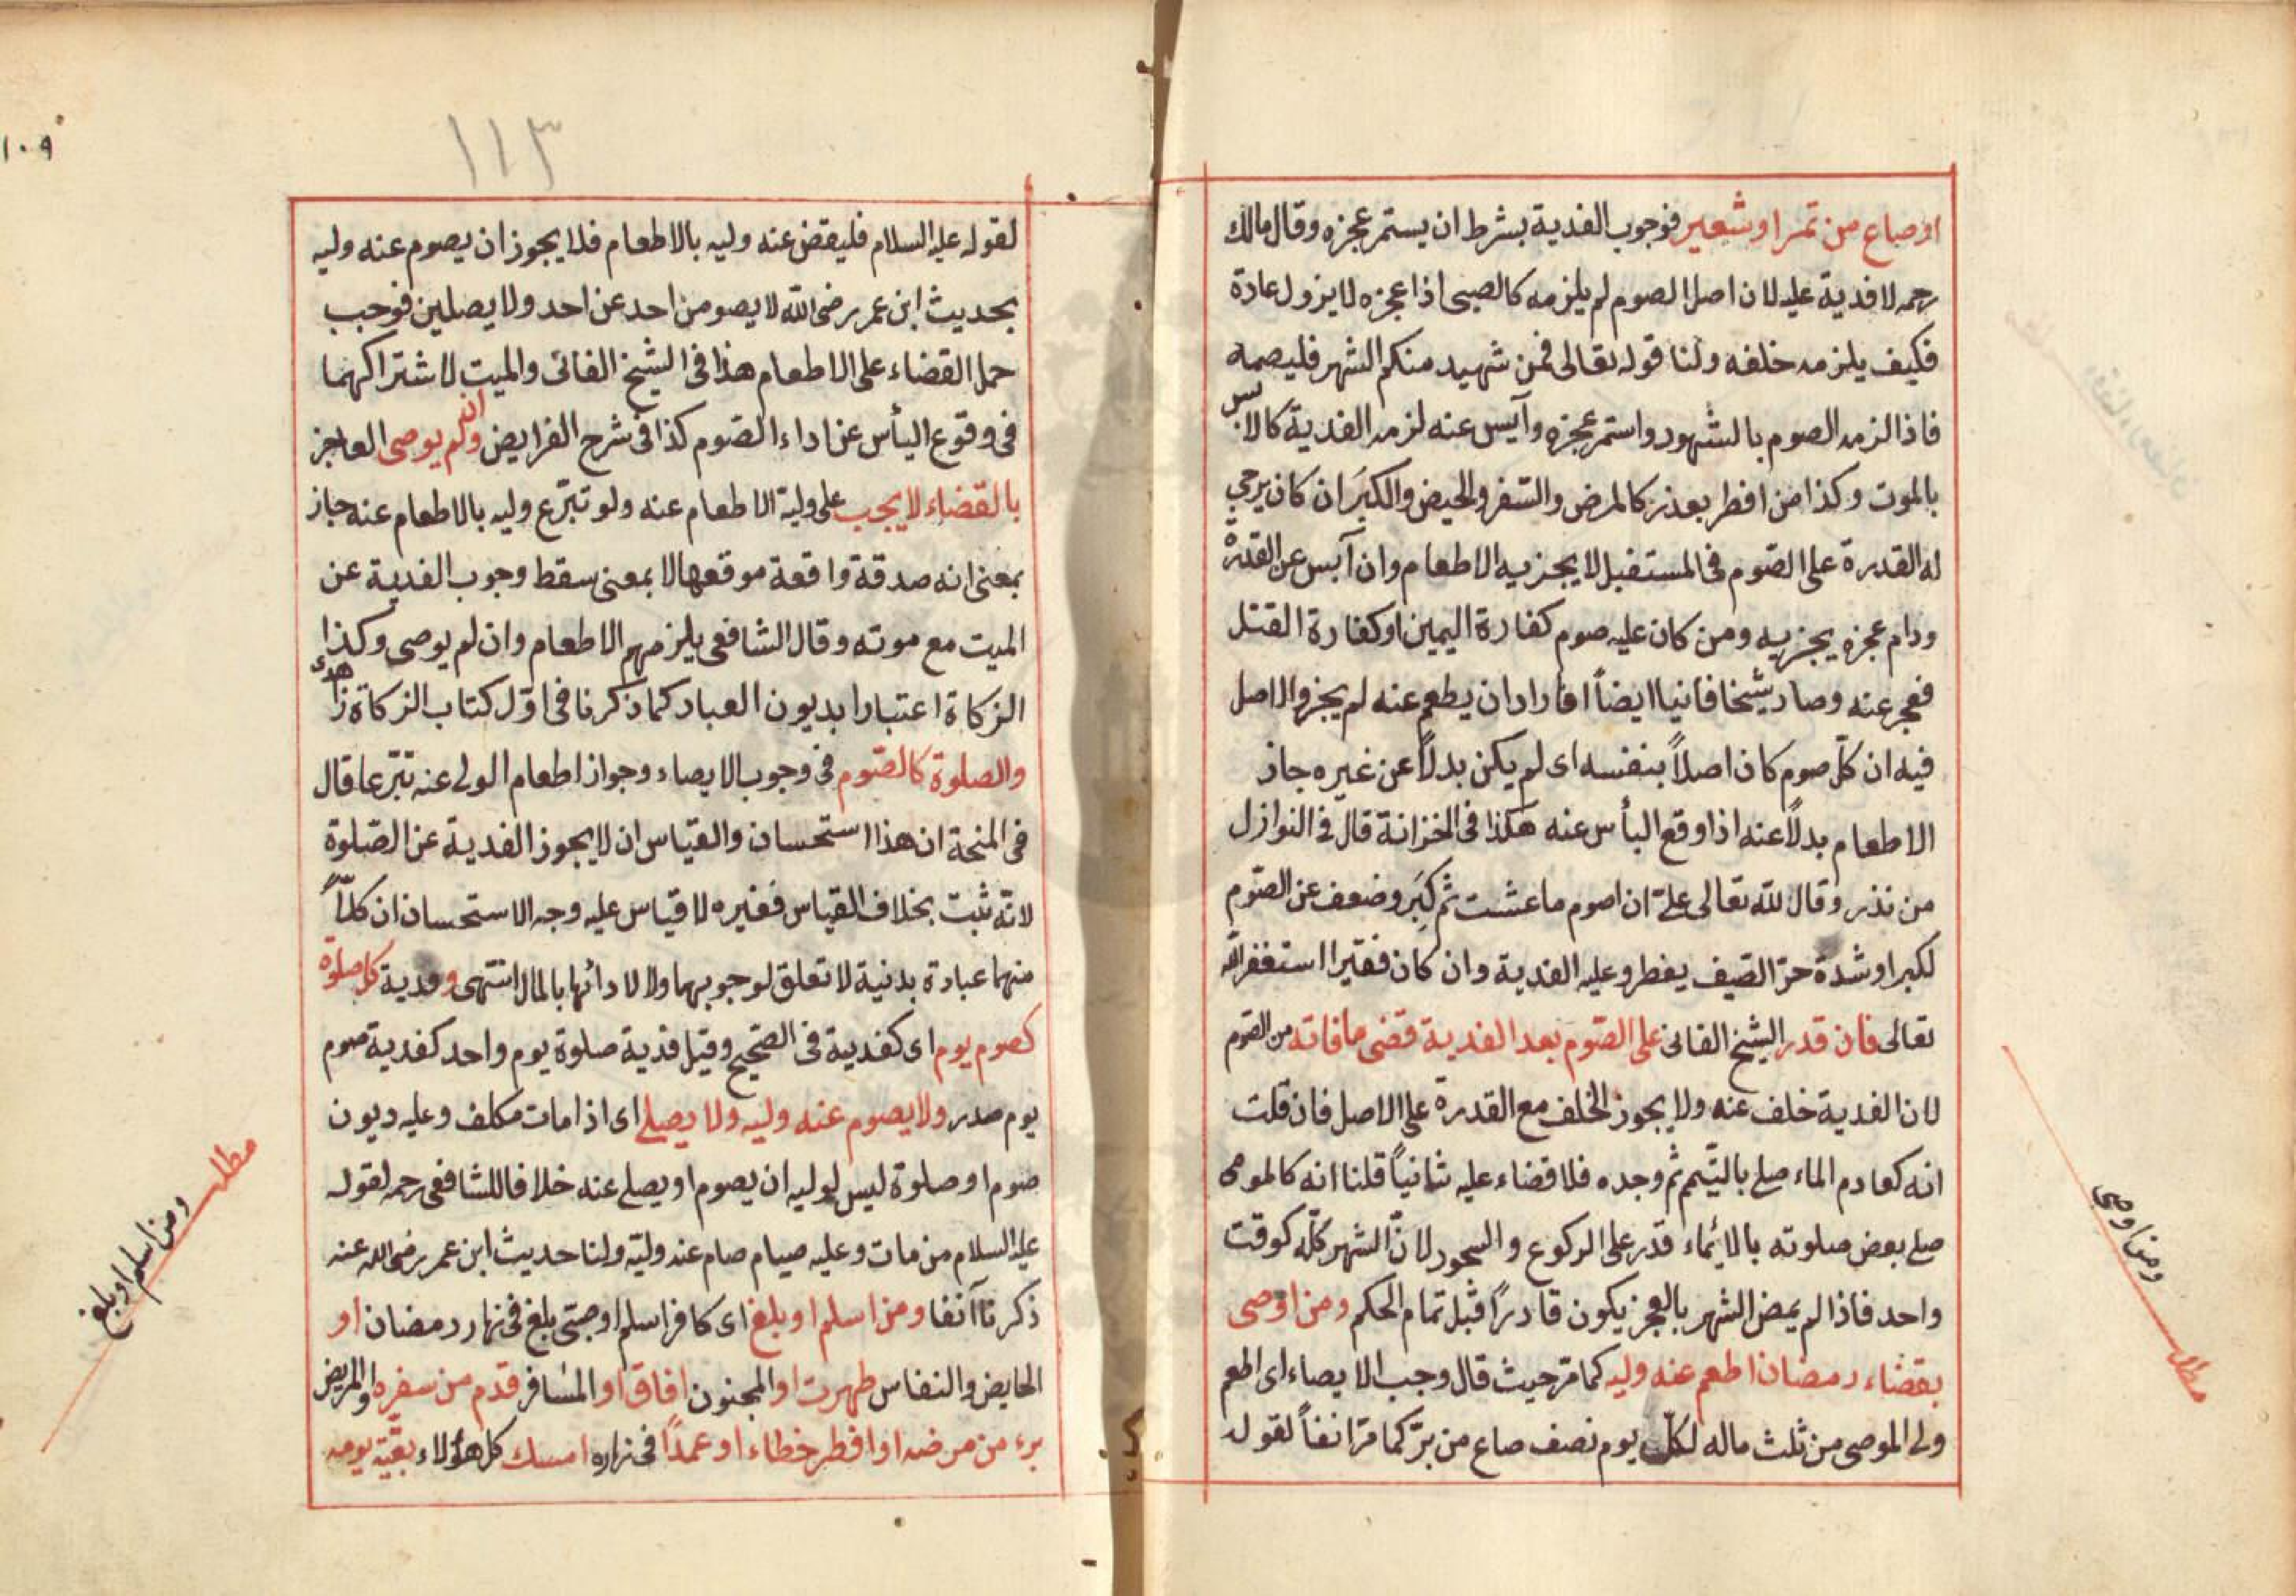 او صاع من تمر او شعير فوجوب الفدية بشرط ان يستمر عجزه وقال مالك
رحمه لا فدية عليه لان اصل الصوم لم يلزمه كالصبى اذا عجزه لا يزول عادة
فكيف يلزمه خلفه ولنا قوله تعالى فمن شهيد منكم الشهر فليصمه
فاذا لزمه الصوم بالشهود واستمر عجزه وآيس عنه لزمه الفدية كالآيس
بالموت وكذا من افطر بعذر كالمرض والسّفر والحيض والكبَر ان كان يرجى
له القدرة على الصّوم فى المستقبل لا يجزيه الاطعام وان آيس عن القدرة
ودام عجزه يجزيه ومن كان عليه صوم كفارة اليمين او كفارة القتل
فعجز عنه وصار شيخا فانيا ايضاً افاراد ان يطعم عنه لم يجز والاصل
فيه ان كلّ صوم كان اصلاً بنفسه اى لم يكن بدلاً عن غيره جاز
الاطعام بدلاً عنه اذا وقع اليأس عنه هكذا فى الخزانة قال فى النوازل
من نذر وقال لله تعالى علىّ ان اصوم ما عشت ثم كبَر وضعف عن الصّوم
لكبر او شدة حرّ الصّيف يفطر وعليه الفدية وان كان فقيرا استغفر الله
تعالى فان قدر الشيخ الفانى على الصّوم بعد الفدية قضى ما فاته من الصّوم
لان الفدية خلف عنه ولا يجوز الخلف مع القدرة على الاصل فان قلت
انه كعادم الماء صلى بالتّيمم ثم وجده فلا قضاء عليه ثانياً قلنا انه كالموصى
صلى بعض صلوته بالائماء قدر على الركوع والسجود لانّ الشهر كلّه كوقت
واحد فاذا لم يمض الشهر بالعجز يكون قادرًا قبل تمام الحكم ومن اوصى
بقضاء رمضان اطعم عنه وليه كما مرّ حيث قال وجب الايصاء اى اطعم
ولى الموصى من ثلث ماله لكلّ يوم نصف صاع من برّ كما مرّ انفاً لقوله
ومن اوصى
مطلب
١٠٩
١١٣
لقوله عليه السلام فليقض عنه وليه بالاطعام فلا يجوز ان يصوم عنه وليه
بحديث ابن عمر رضى الله لا يصومن احد عن احد ولا يصلين فوجب
حمل القضاء على الاطعام هذا فى الشيخ الفانى والميت لاشتراكهما
فى وقوع اليأس عن اداء الصّوم كذا فى شرح الفرايض وان لم يوصى العاجز
بالقضاء لا يجب على وليه الاطعام عنه ولو تبرّع وليه بالاطعام عنه جاز
بمعنى انه صدقة واقعة موقعها لا بمعنى سقط وجوب الفدية عن
الميت مع موته وقال الشافعى يلزمهم الاطعام وان لم يوصى وكذا
الزكاة اعتبارا بديون العباد كما ذكرنا فى اوّل كتاب الزكاة
والصلوة كالصّوم فى وجوب الايصاء وجواز اطعام الولى عنه تبّرعا قال
فى المنحة ان هذا استحسان والقياس ان لا يجوز الفدية عن الصّلوة
لانّه ثبت بخلاف القياس فغيره لا قياس عليه وجه الاستحسان ان كلاًّ
منهما عبادة بدنية لا تعلق لوجوبهما ولا لادائها بالمال انتهى وفدية كل صلوة
كصوم يوم اى كفدية فى الصّحيح وقيل فدية صلوة يوم واحد كفدية صوم
يوم صدر ولا يصوم عنه وليه ولا يصلى اى اذا مات مكلف وعليه ديون
صوم او صلوة ليس لوليه ان يصوم او يصلى عنه خلافا للشافعى رحمه لقوله
عليه السلام من مات وعليه صيام صام عنه وليّه ولنا حديث ابن عمر رضى الله عنه
ذكرناآنفا ومن اسلم او بلغ اى كافر اسلم او صبىّ بلغ فى نهار رمضان او
الحايض والنفاس طهرت او المجنون افاق او المسافر قدم من سفره او المريض
برء من مرضه او افطر خطاء او عمداً فى نهاره امسك كل هؤلاء بقيّة يومه
مطلب
ومن اسلم او بلغ